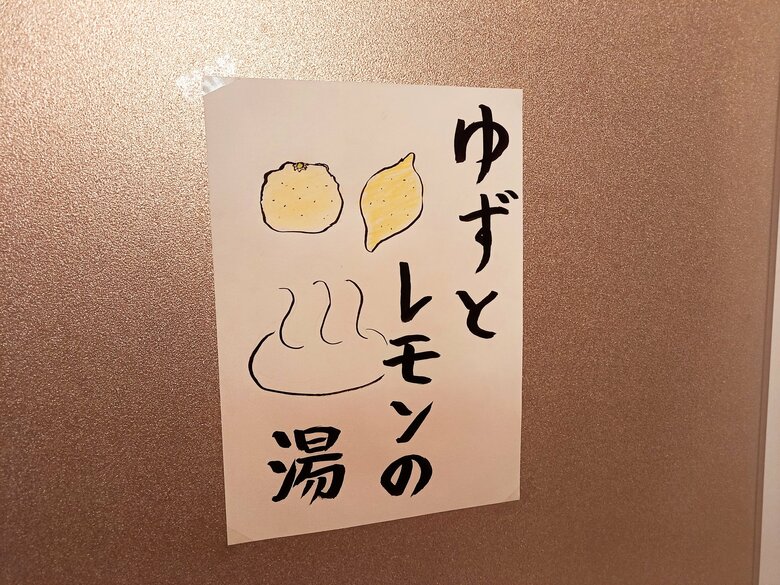 ゆずと
レモンの
湯